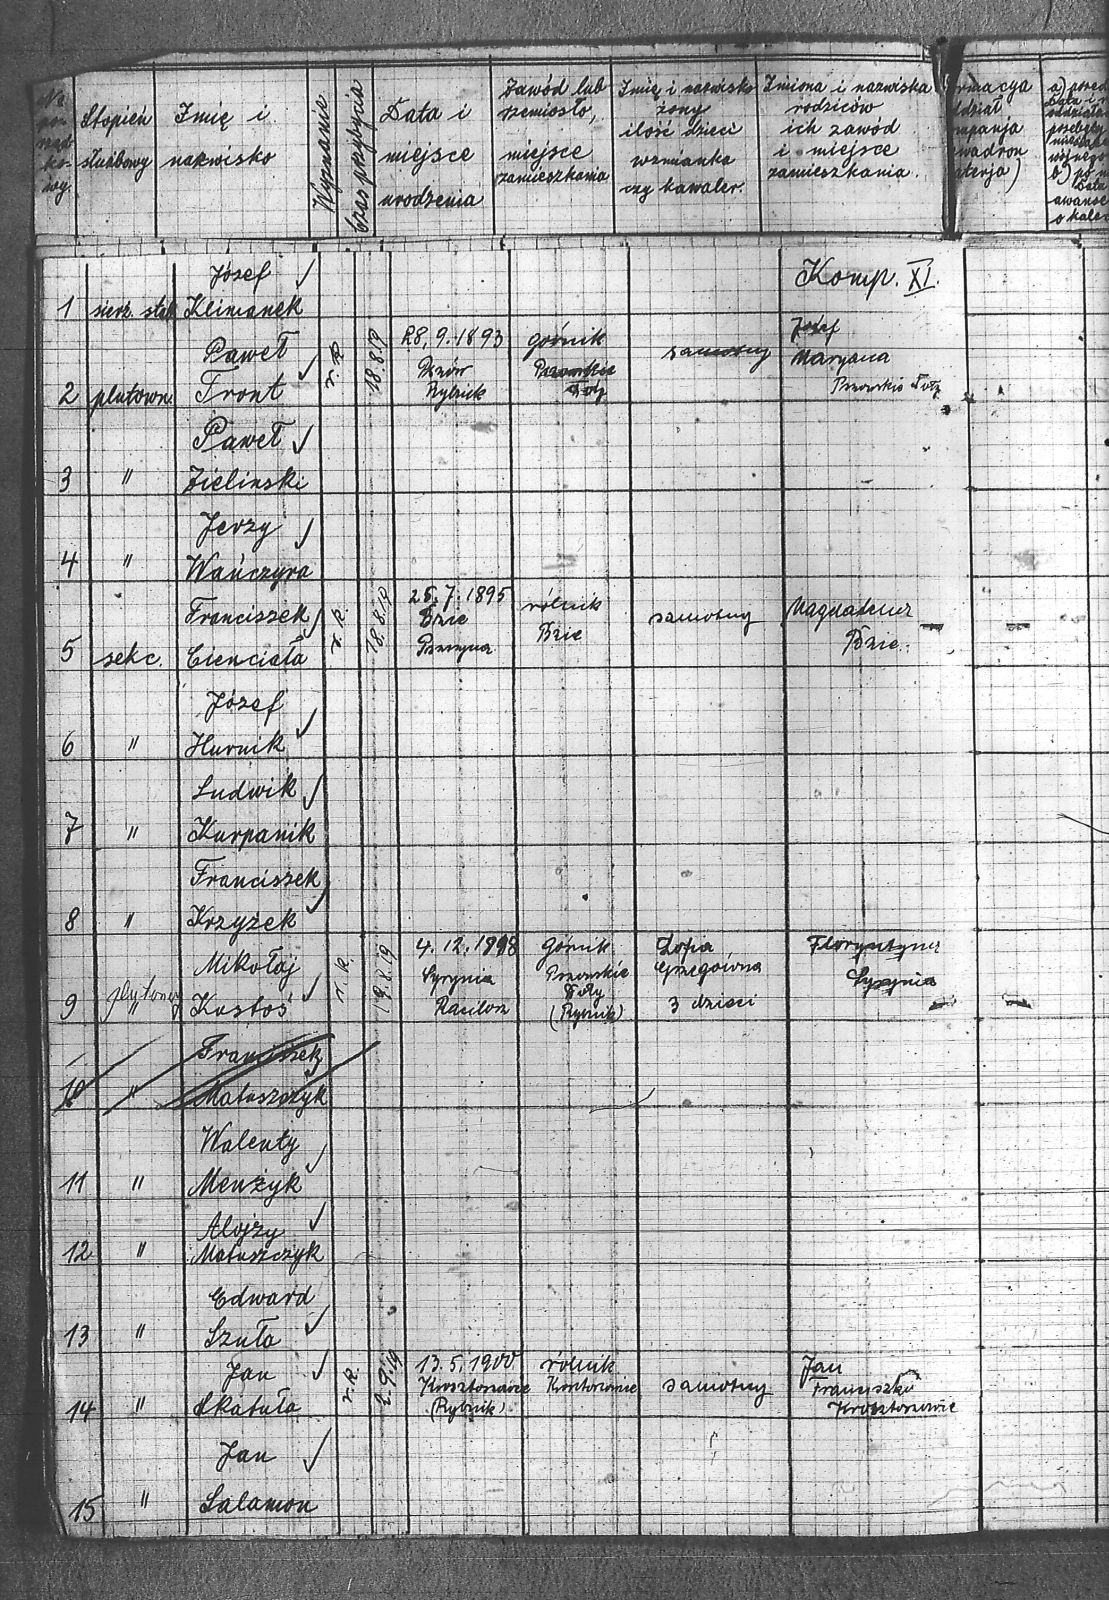 No
po-
rząd-
ko-
wy
Stopień
służbowy
Imię i
nazwisko
Wyznanie
Czas przybycia
Data i
miejsce
urodzenia
Zawód lub
rzemiosło,
miejsce
zamieszkania
Imię i nazwisko
żony
ilość dzieci
wzmianka
czy kawaler.
Imiona i nazwiska
rodziców
ich zawód
i miejsce
zamieszkania.
rmacya
dział
mpanja
wadron
terja)
a) przed
Data i
oddziała
przebyty
b) po
Data
awanse
o kale
Komp. XI.
1 sierż. stab Józef
Klimanek
2 plutown. Paweł
Front
r. k.
18.8.19
28.9.1893
Pszów
Rybnik
górnik
Pszowskie
Doły
samotny
Józef
Maryana
Pszowskie Doły
3 " Paweł
Zielinski
4 " Jerzy
Wańczyra
5 sekc. Franciszek
Cienciała
r. k.
18.8.19
25.7.1895
Bzie
Pszczyna
rólnik
Bzie
samotny
Magdalena
Bzie.
6 " Józef
Hurnik
7 " Ludwik
Kurpanik
8 " Franciszek
Krzyżek
9 plutonowy " Mikołaj
Kustoś
r. k.
19.8.19
4.12.1898
Syrynia
Racibor
Górnik
Pszowskie
Doły
(Rybnik)
Zofia
Grzegoówna
3 dzieci
Floryntyna
Syrynia
10 " Franciszek
Matuszczyk
11 " Walenty
Menżyk
12 " Alojzy
Matuszczyk
13 " Edward
Szuła
14 " Jan
Skatuła
r. k.
2.9.19
13.5.1900
Krosztoszowice
(Rybnik)
rólnik
Krostoszowice
samotny
Jan
Franciszka
Krosztoszowic
15 " Jan
Salamon